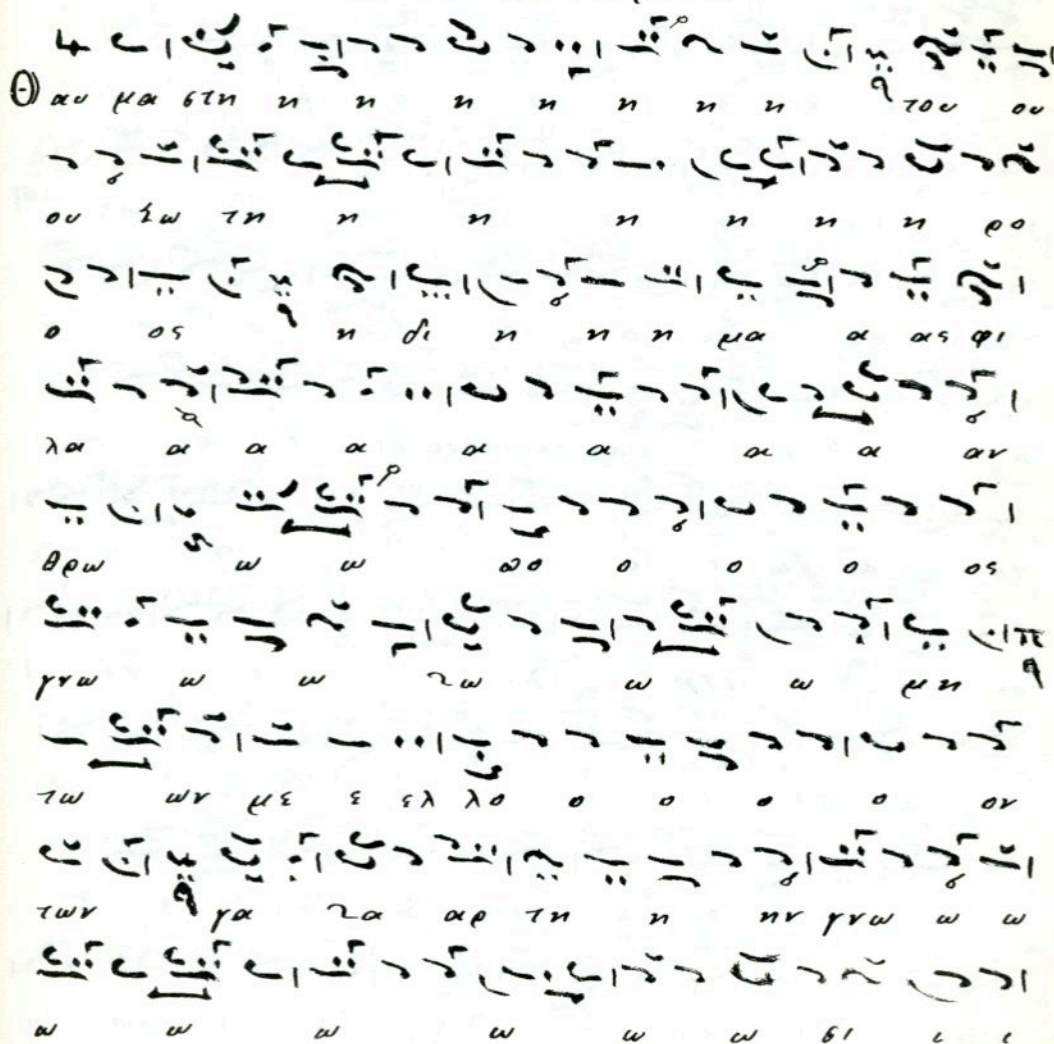 Θαυ μα στη η η η η η η η του ου
ου Σω τη η η η η η η ρο
ο ος η δι η η η μα α ας φι
λα α α α α α α α αν
θρω ω ω πο ο ο ο ος
γνω ω ω γω ω ω μη
τω ων με ε ελ λο ο ο ο ο ον
των γα γα αρ τη η ην γνω ω ω
ω ω ω ω ω ω σι ι ι